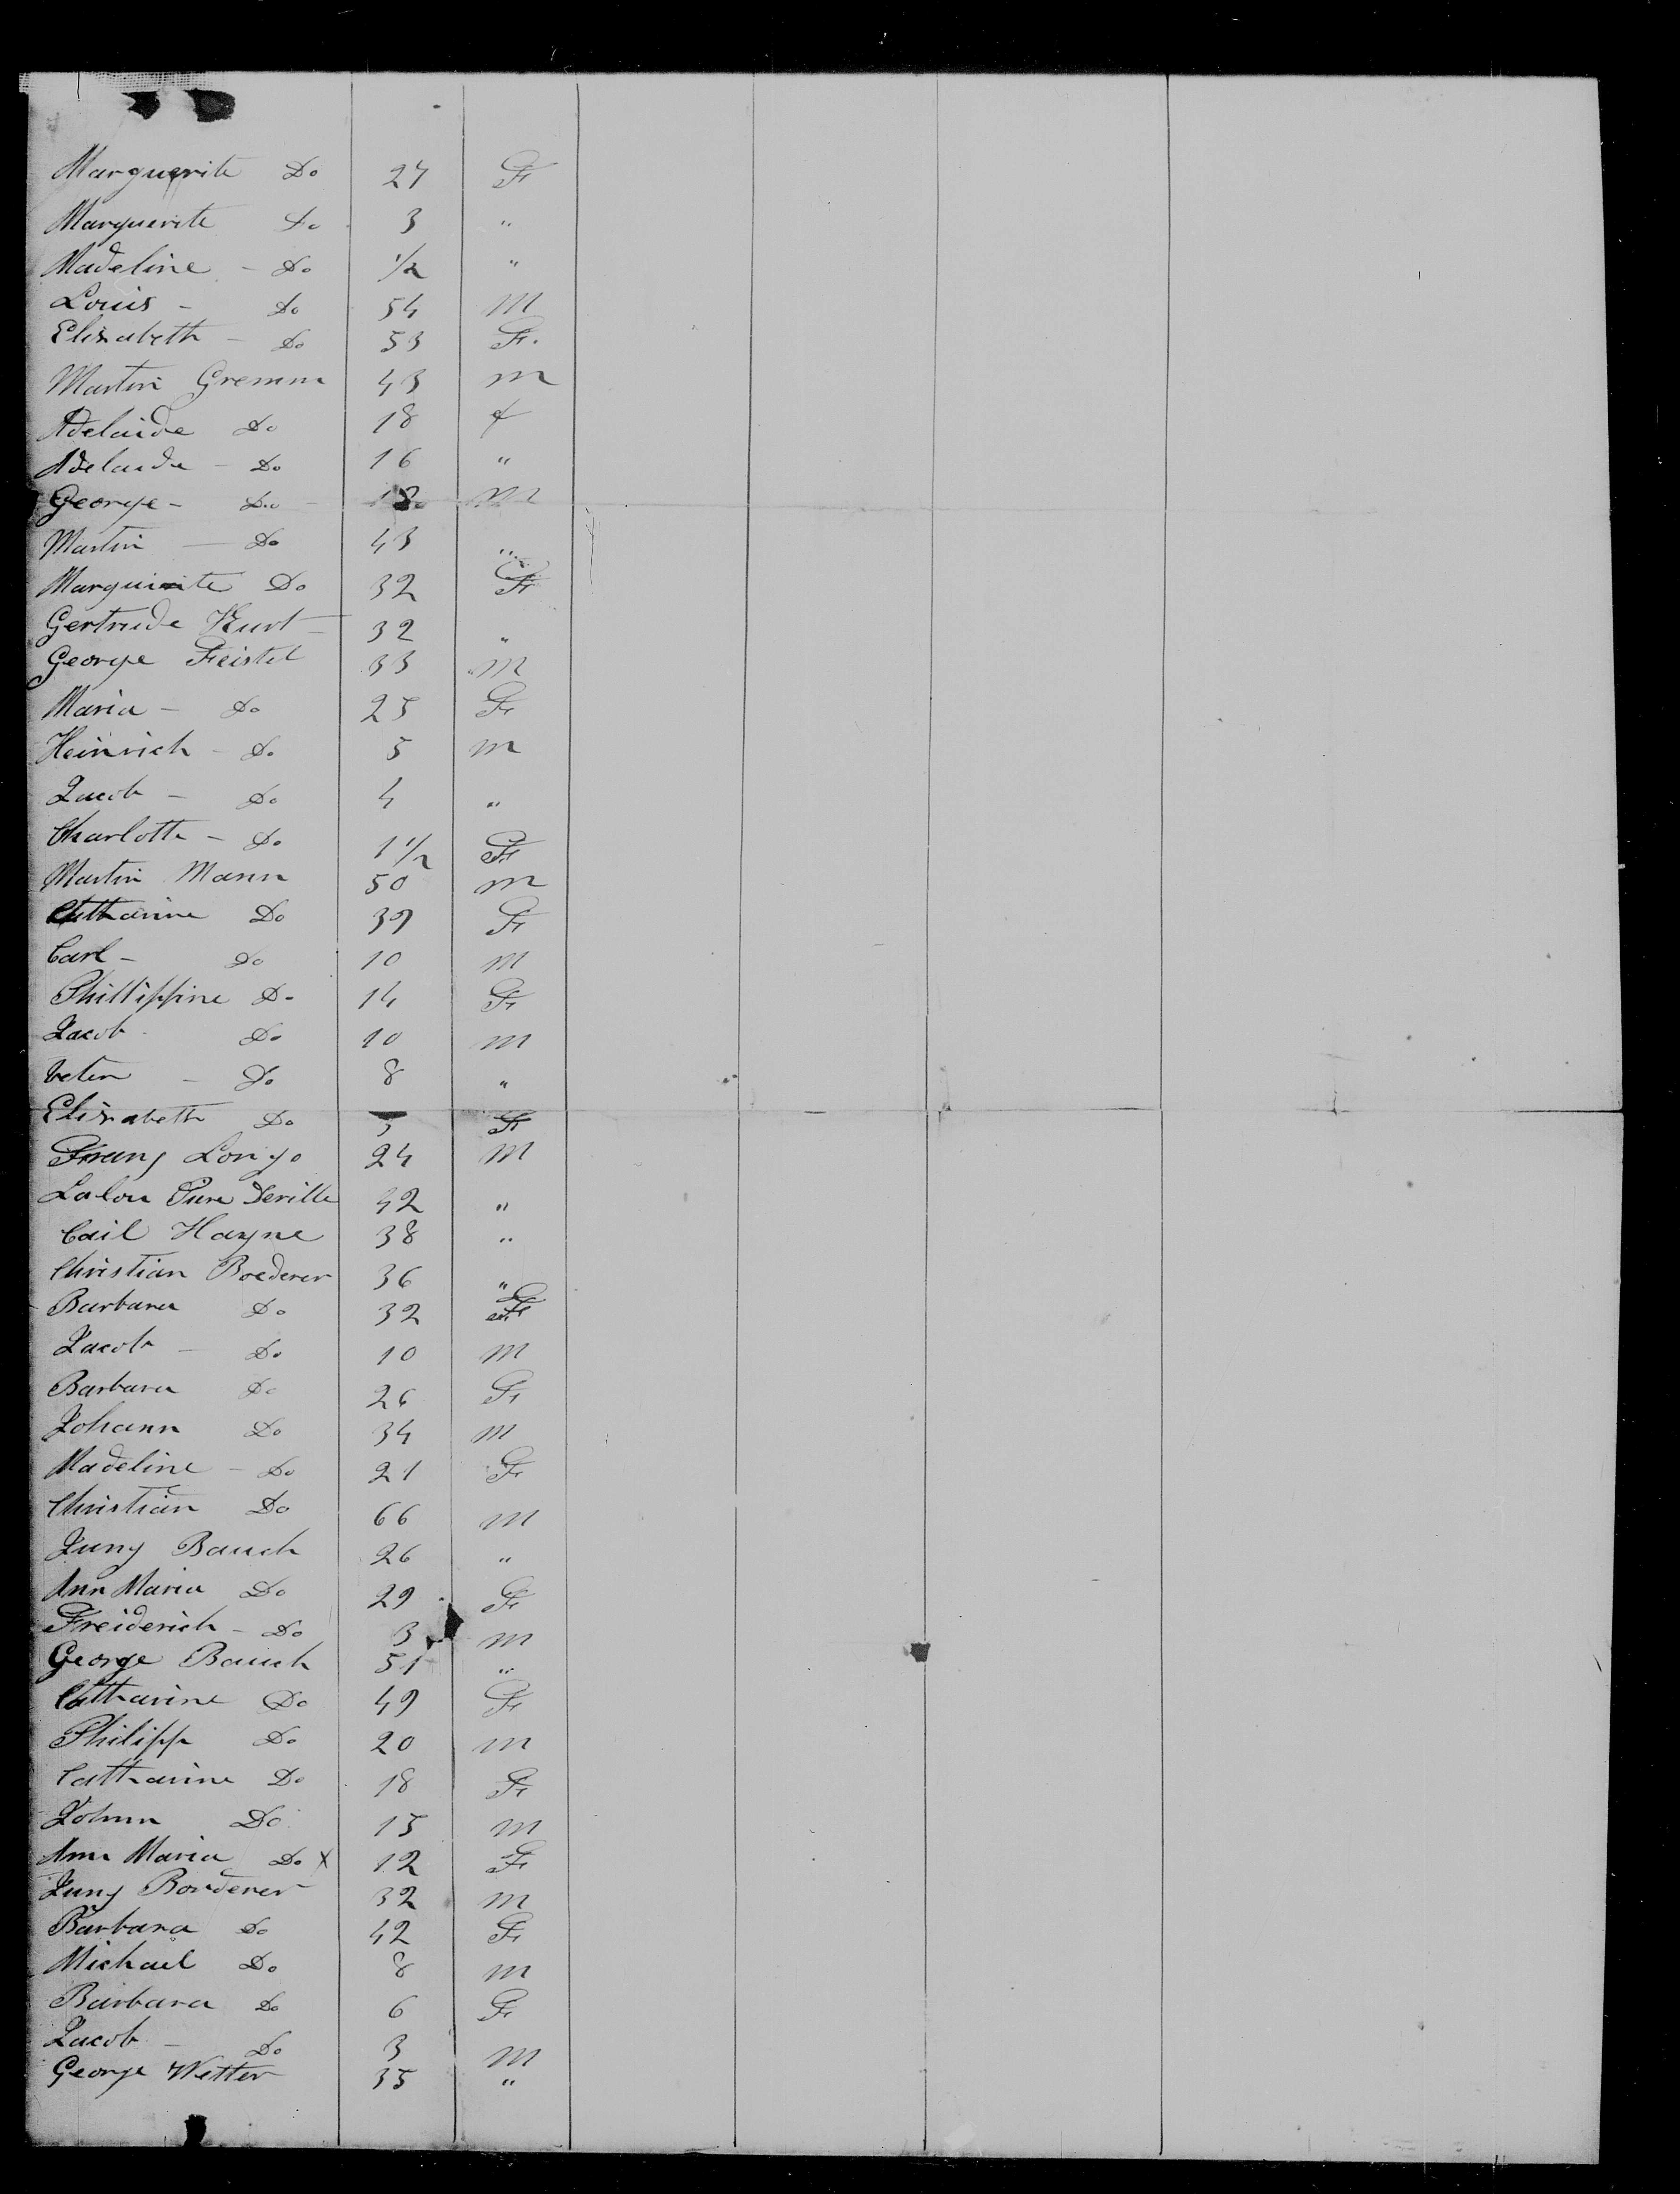 Marguerite Do 27 F
Marguerite Do 3 "
Madeline - Do 1/2 "
Louis - Do 54 M
Elizabeth - Do 53 F.
Martin Gremm 43 m
Adelaide Do 18 f
Adelaide - Do 16 "
George - Do - M
Martin - Do 43 "
Marguirite Do 32 F
Gertrude Kurt - 32 "
George Feistel 33 M
Maria - Do 25 F
Heinrich - Do 5 m
Jacob - Do 4 "
Charlotte - Do 1 1/2 F
Martin Mann 50 m
Catharine Do 39 F
Carl - Do 10 m
Phillippine Do 14 F
Jacob Do 10 m
Do 8 "
Elizabeth Do 5 F
Franz 24 M
Lalou 42 "
Hayne 38 "
Christian Boederer 36 "
Barbara Do 32 F
Jacob - Do 10 m
Barbara Do 26 F
Johann Do 34 m
Madeline - Do 21 F
Christian Do 66 m
Bauch 26 "
Ann Maria Do 29 F
Freiderich - Do 3 m
George Bauch 51 "
Catharine Do 49 F
Philipp Do 20 m
Catharine Do 18 F
Johnn Do 15 m
Ann Maria Do X 12 F
Borderer 32 m
Barbara Do 42 F
Michael Do 8 m
Barbara Do 6 F
Jacob - Do 3 m
George Wetter 35 "